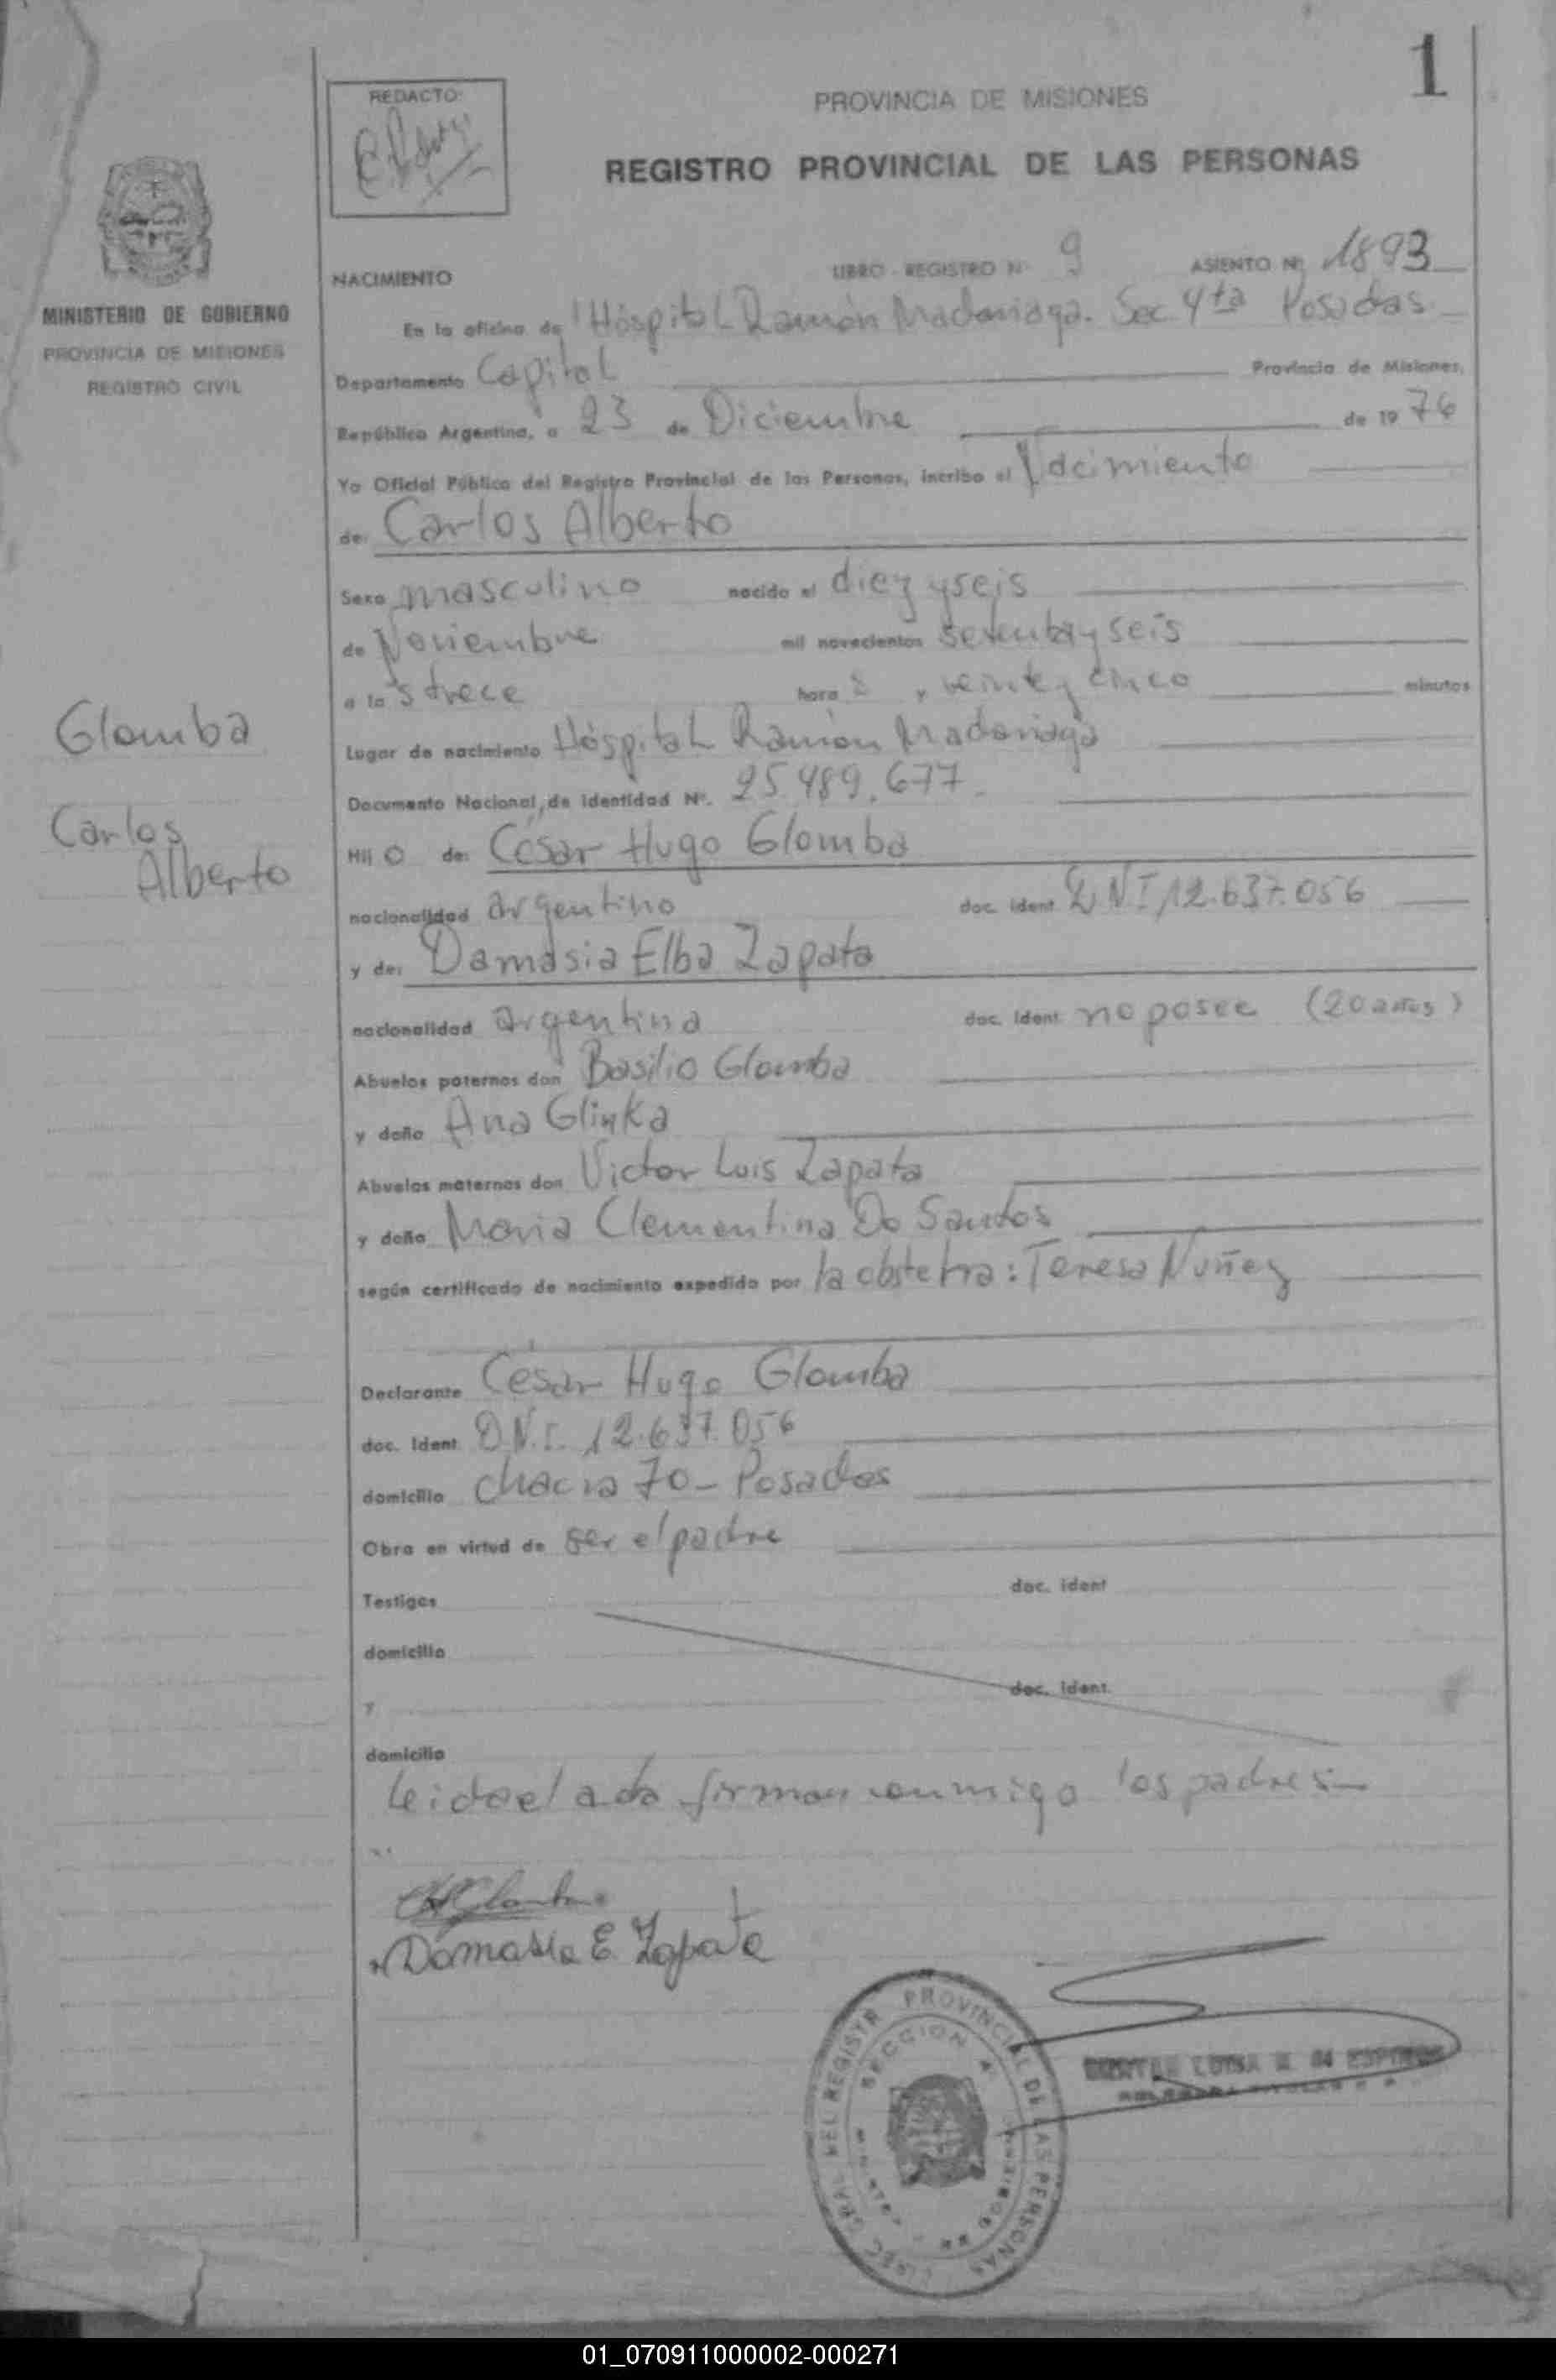 1
REDACTO:
PROVINCIA DE MISIONES
REGISTRO PROVINCIAL DE LAS PERSONAS
MINISTERIO DE GOBIERNO
PROVINCIA DE MISIONES
REGISTRO CIVIL
NACIMIENTO LIBRO - REGISTRO Nº 9 ASIENTO Nº 1893
En la oficina de Hóspital Ramón Madariaga. Sec 4ta Posadas
Departamento Capital Provincia de Misiones,
República Argentina, a 23 de Diciembre de 1976
Yo Oficial Público del Registro Provincial de las Personas, incribo el Nacimiento
de: Carlos Alberto
Sexo masculino nacido el diez y seis
de Noviembre mil novecientos setenta y seis
a las trece hora s y veinte y cinco minutos
Lugar de nacimiento Hóspital Ramón Madariaga
Documento Nacional de Identidad Nº. 25.489.677
Hijo de: César Hugo Glomba
nacionalidad argentino doc. ident. DNI 12.637.056
y de: Damasia Elba Zapata
nacionalidad argentina doc. ident. no posee (20 años)
Abuelos paternos don Basilio Glomba
y doña Ana Glinka
Abuelos maternos don Victor Luis Zapata
y doña Maria Clementina Do Santos
según certificado de nacimiento expedido por la obstetra: Teresa Nuñez
Declarante César Hugo Glomba
doc. Ident. D.N.I. 12.637.056
domicilio Chacra 70 - Posadas
Obra en virtud de ser el padre
Testigos doc. ident
domicilio
y doc. ident.
domicilio
leido el acta firman conmigo los padres
Glomba
Carlos
Alberto
Damasia E. Zapata
DIREC. GRAL. DEL REGISTR. PROVINCIAL DE LAS PERSONAS
SECCION
01_070911000002-000271